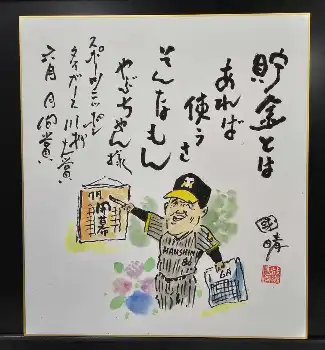 貯金とは
あれば
使うさ
そんなもん
やぶちゃん様
スポーツニッポン
タイガース川柳大賞
六月 月間賞
國晴
7月
開幕
HANSHIN
86
6月